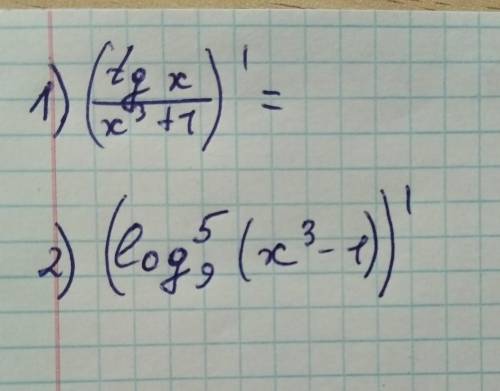 1) (tg x / x³ + 1)' =
2) (log₉⁵ (x³ - 1))'